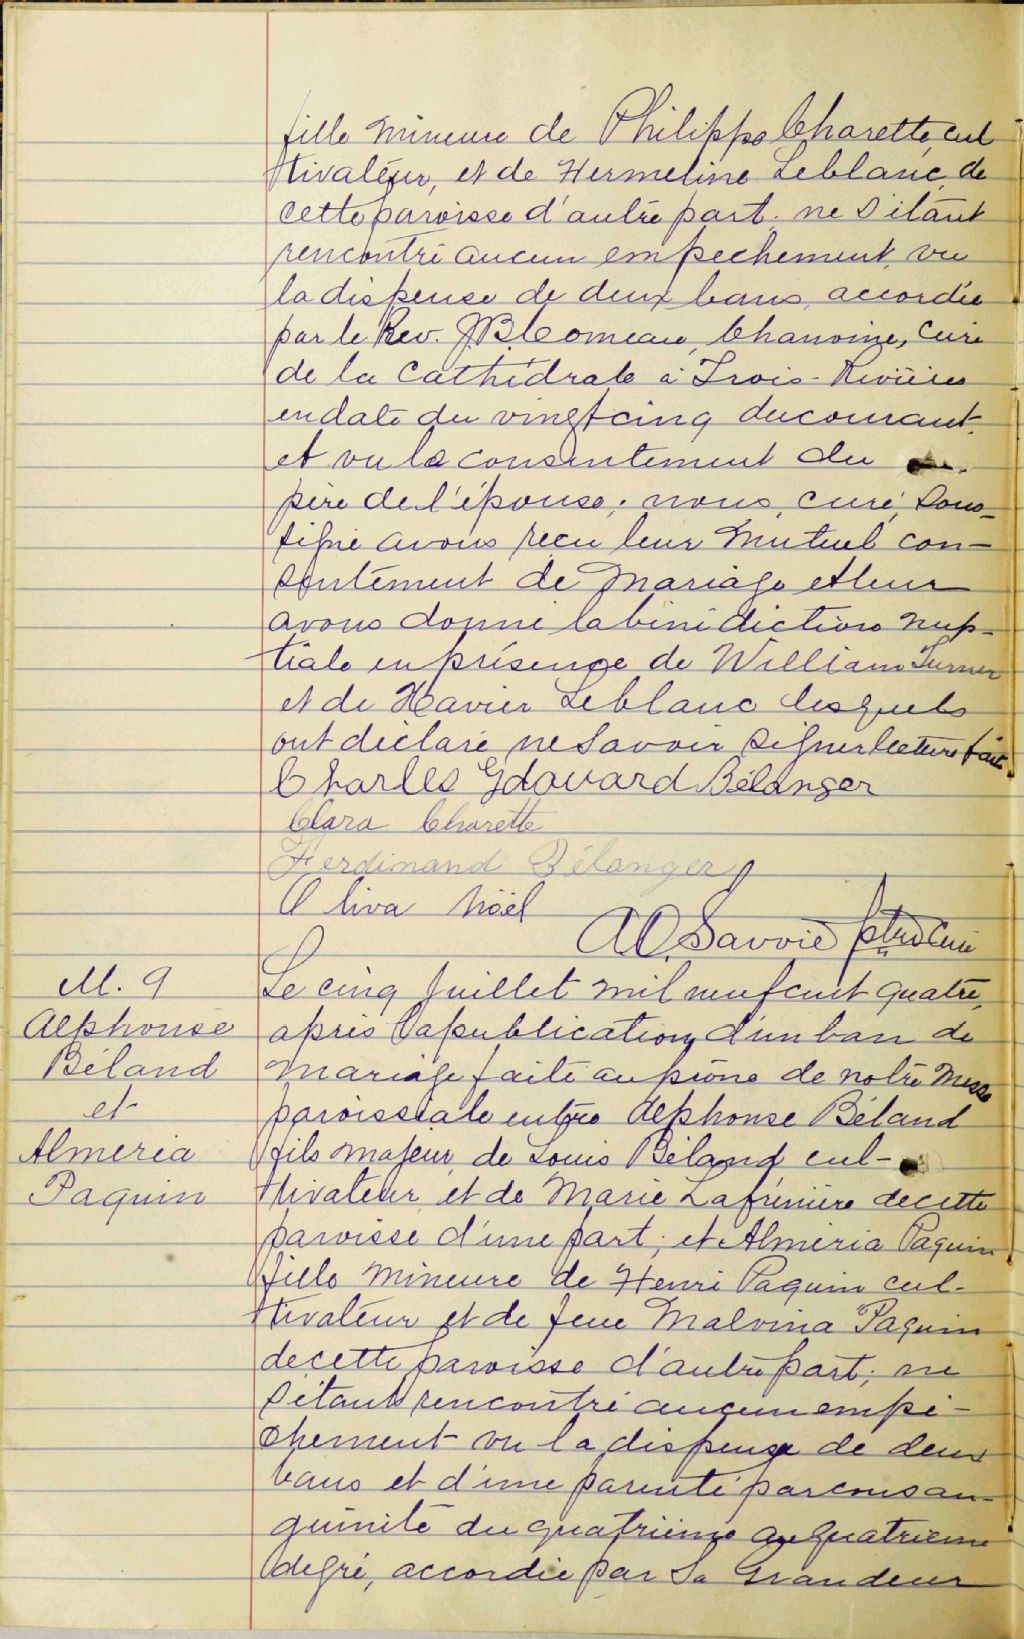 fille mineure de Philippe Charette, cul
tivateur, et de Hermeline Leblanc, de
cette paroisse d'autre part, ne s'étant
rencontré aucun empechement, vu
la dispense de deux bans, accordée
par le Rev. J.B. Comeau, Chanoine, Curé
de la Cathédrale à Trois-Rivières
en date du vingt cinq du courant,
et vu le consentement du
père de l'épouse; nous, curé, sous-
signé avons reçu leur mutuel con-
sentement de mariage et leur
avons donné la bénédiction nup-
tiale en présence de William Turner
et de Xavier Leblanc lesquels
ont déclaré ne savoir signer lecture faite.
Charles Edouard Bélanger
Clara Charette
Ferdinand Bélanger
Oliva Nöel
A.O. Savoie ptre Curé
M. 9
Alphonse
Béland
et
Almeria
Paquin
Le cinq Juillet mil neuf cent quatre,
après la publication d'un ban de
mariage faite au prône de notre messe
paroissiale entre Alphonse Béland
fils majeur de Louis Béland cul-
tivateur et de Marie Lafrenière de cette
paroisse d'une part; et Almeria Paquin
fille mineure de Henri Paquin cul-
tivateur et de feue Malvina Paquin
de cette paroisse d'autre part; ne
s'étant rencontré aucun empê-
chement vu la dispense de deux
bans et d'une parenté par consan-
guinité du quatrième au quatrième
degré, accordée par Sa Grandeur